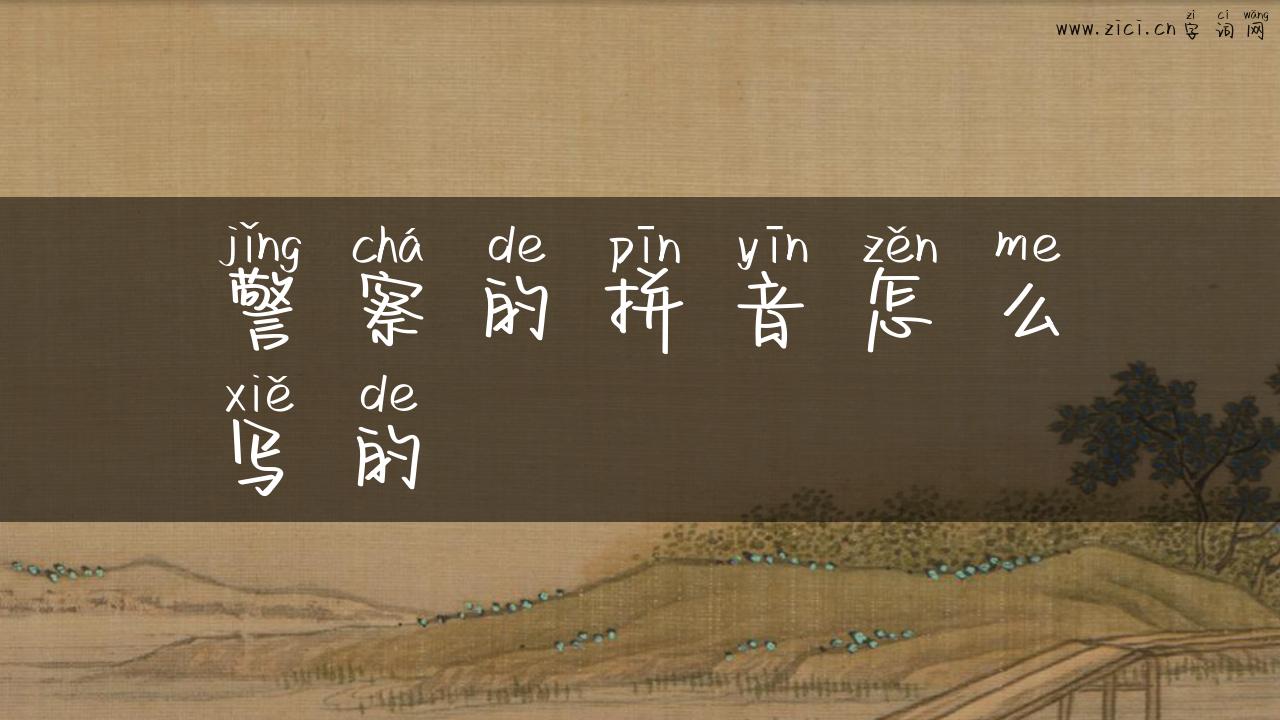 zì cí wǎng
www.zici.cn字词网
jǐng chá de pīn yīn zěn me
警察的拼音怎么
xiě de
写的